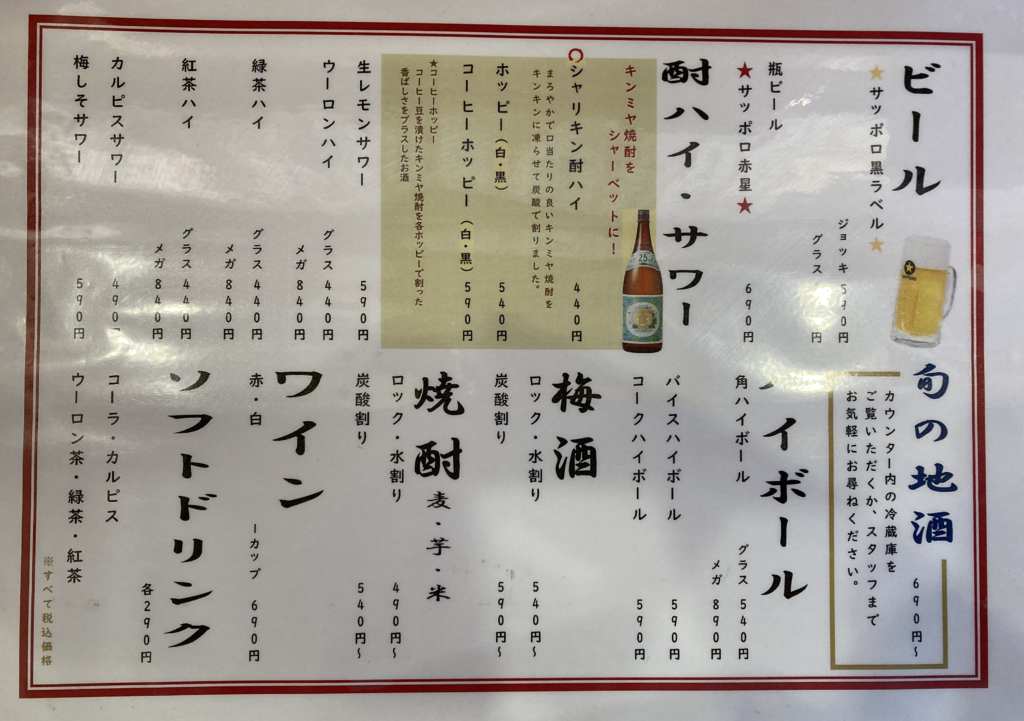 ビール
★サッポロ黒ラベル★
ジョッキ 590円
グラス 円
瓶ビール
★サッポロ赤星★
690円
酎ハイ・サワー
キンミヤ焼酎を
シャーベットに！
シャリキン酎ハイ 440円
まろやかで口当たりの良いキンミヤ焼酎を
キンキンに凍らせて炭酸で割りました。
ホッピー（白・黒） 540円
コーヒーホッピー（白・黒） 590円
★コーヒーホッピー
コーヒー豆を漬けたキンミヤ焼酎を各ホッピーで割った
香ばしさをプラスしたお酒
生レモンサワー 590円
ウーロンハイ グラス 440円
メガ 840円
緑茶ハイ グラス 440円
メガ 840円
紅茶ハイ グラス 440円
メガ 840円
カルピスサワー 490円
梅しそサワー 590円
旬の地酒
690円～
カウンター内の冷蔵庫を
ご覧いただくか、スタッフまで
お気軽にお尋ねください。
ハイボール
角ハイボール グラス 540円
メガ 890円
バイスハイボール 590円
コークハイボール 590円
梅酒
ロック・水割り 540円～
炭酸割り 590円～
焼酎 麦・芋・米
ロック・水割り 490円～
炭酸割り 540円～
ワイン
赤・白 一カップ 690円
ソフトドリンク
各290円
コーラ・カルピス
ウーロン茶・緑茶・紅茶
※すべて税込価格